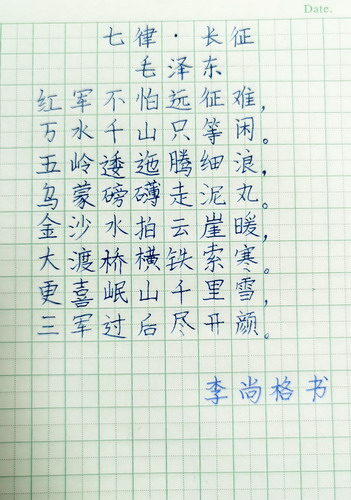 Date.
七律·长征
毛泽东
红军不怕远征难，
万水千山只等闲。
五岭逶迤腾细浪，
乌蒙磅礴走泥丸。
金沙水拍云崖暖，
大渡桥横铁索寒。
更喜岷山千里雪，
三军过后尽开颜。
李尚格书